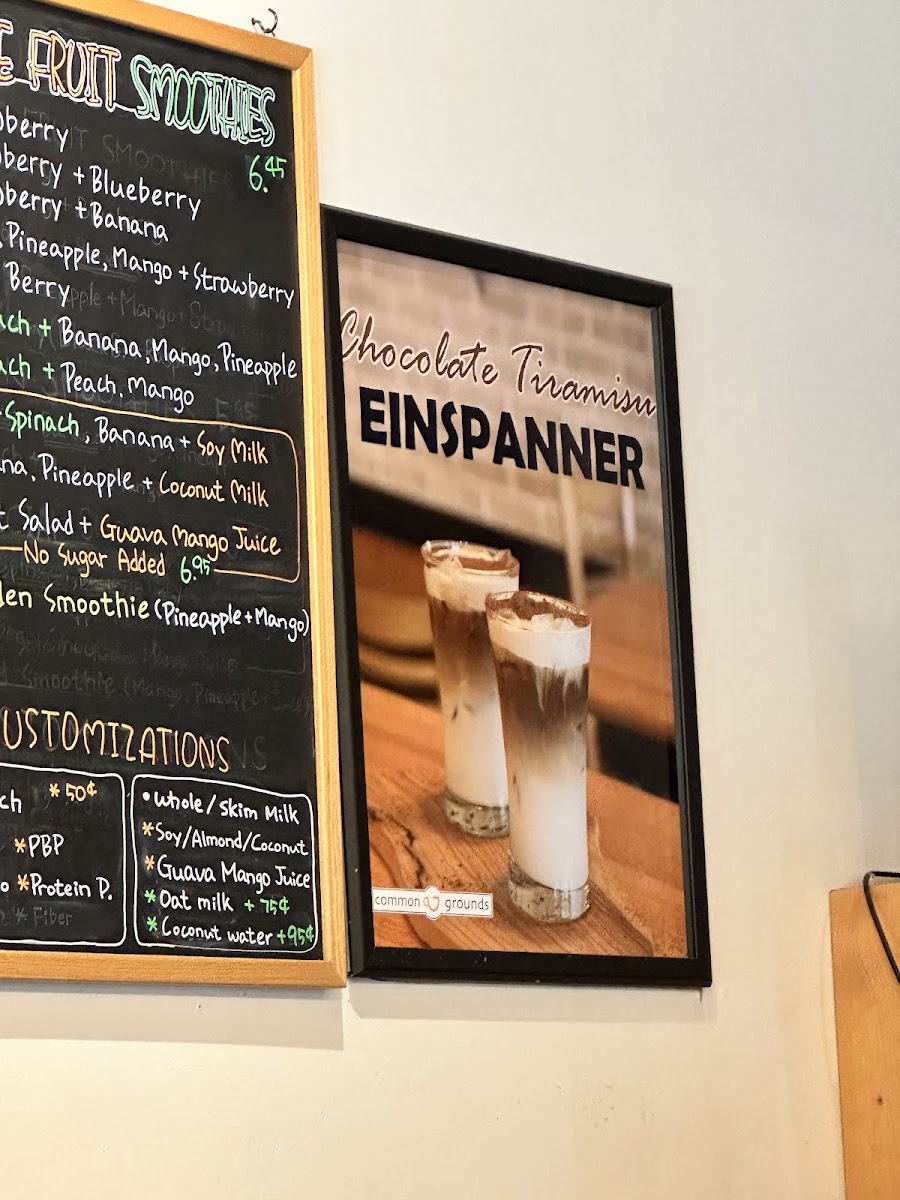 FRUIT SMOOTHIES
6.45
berry
berry + Blueberry
berry + Banana
Pineapple, Mango + Strawberry
Berry
ach + Banana, Mango, Pineapple
ach + Peach, Mango
Spinach, Banana + Soy Milk
na, Pineapple + Coconut Milk
Salad + Guava Mango Juice
No Sugar Added 6.95
den Smoothie (Pineapple + Mango)
USTOMIZATIONS
ch *50¢
*PBP
o *Protein P.
* Fiber
• Whole / Skim Milk
*Soy/Almond/Coconut
*Guava Mango Juice
*Oat milk + 75¢
*Coconut water +95¢
Chocolate Tiramisu
EINSPANNER
common grounds